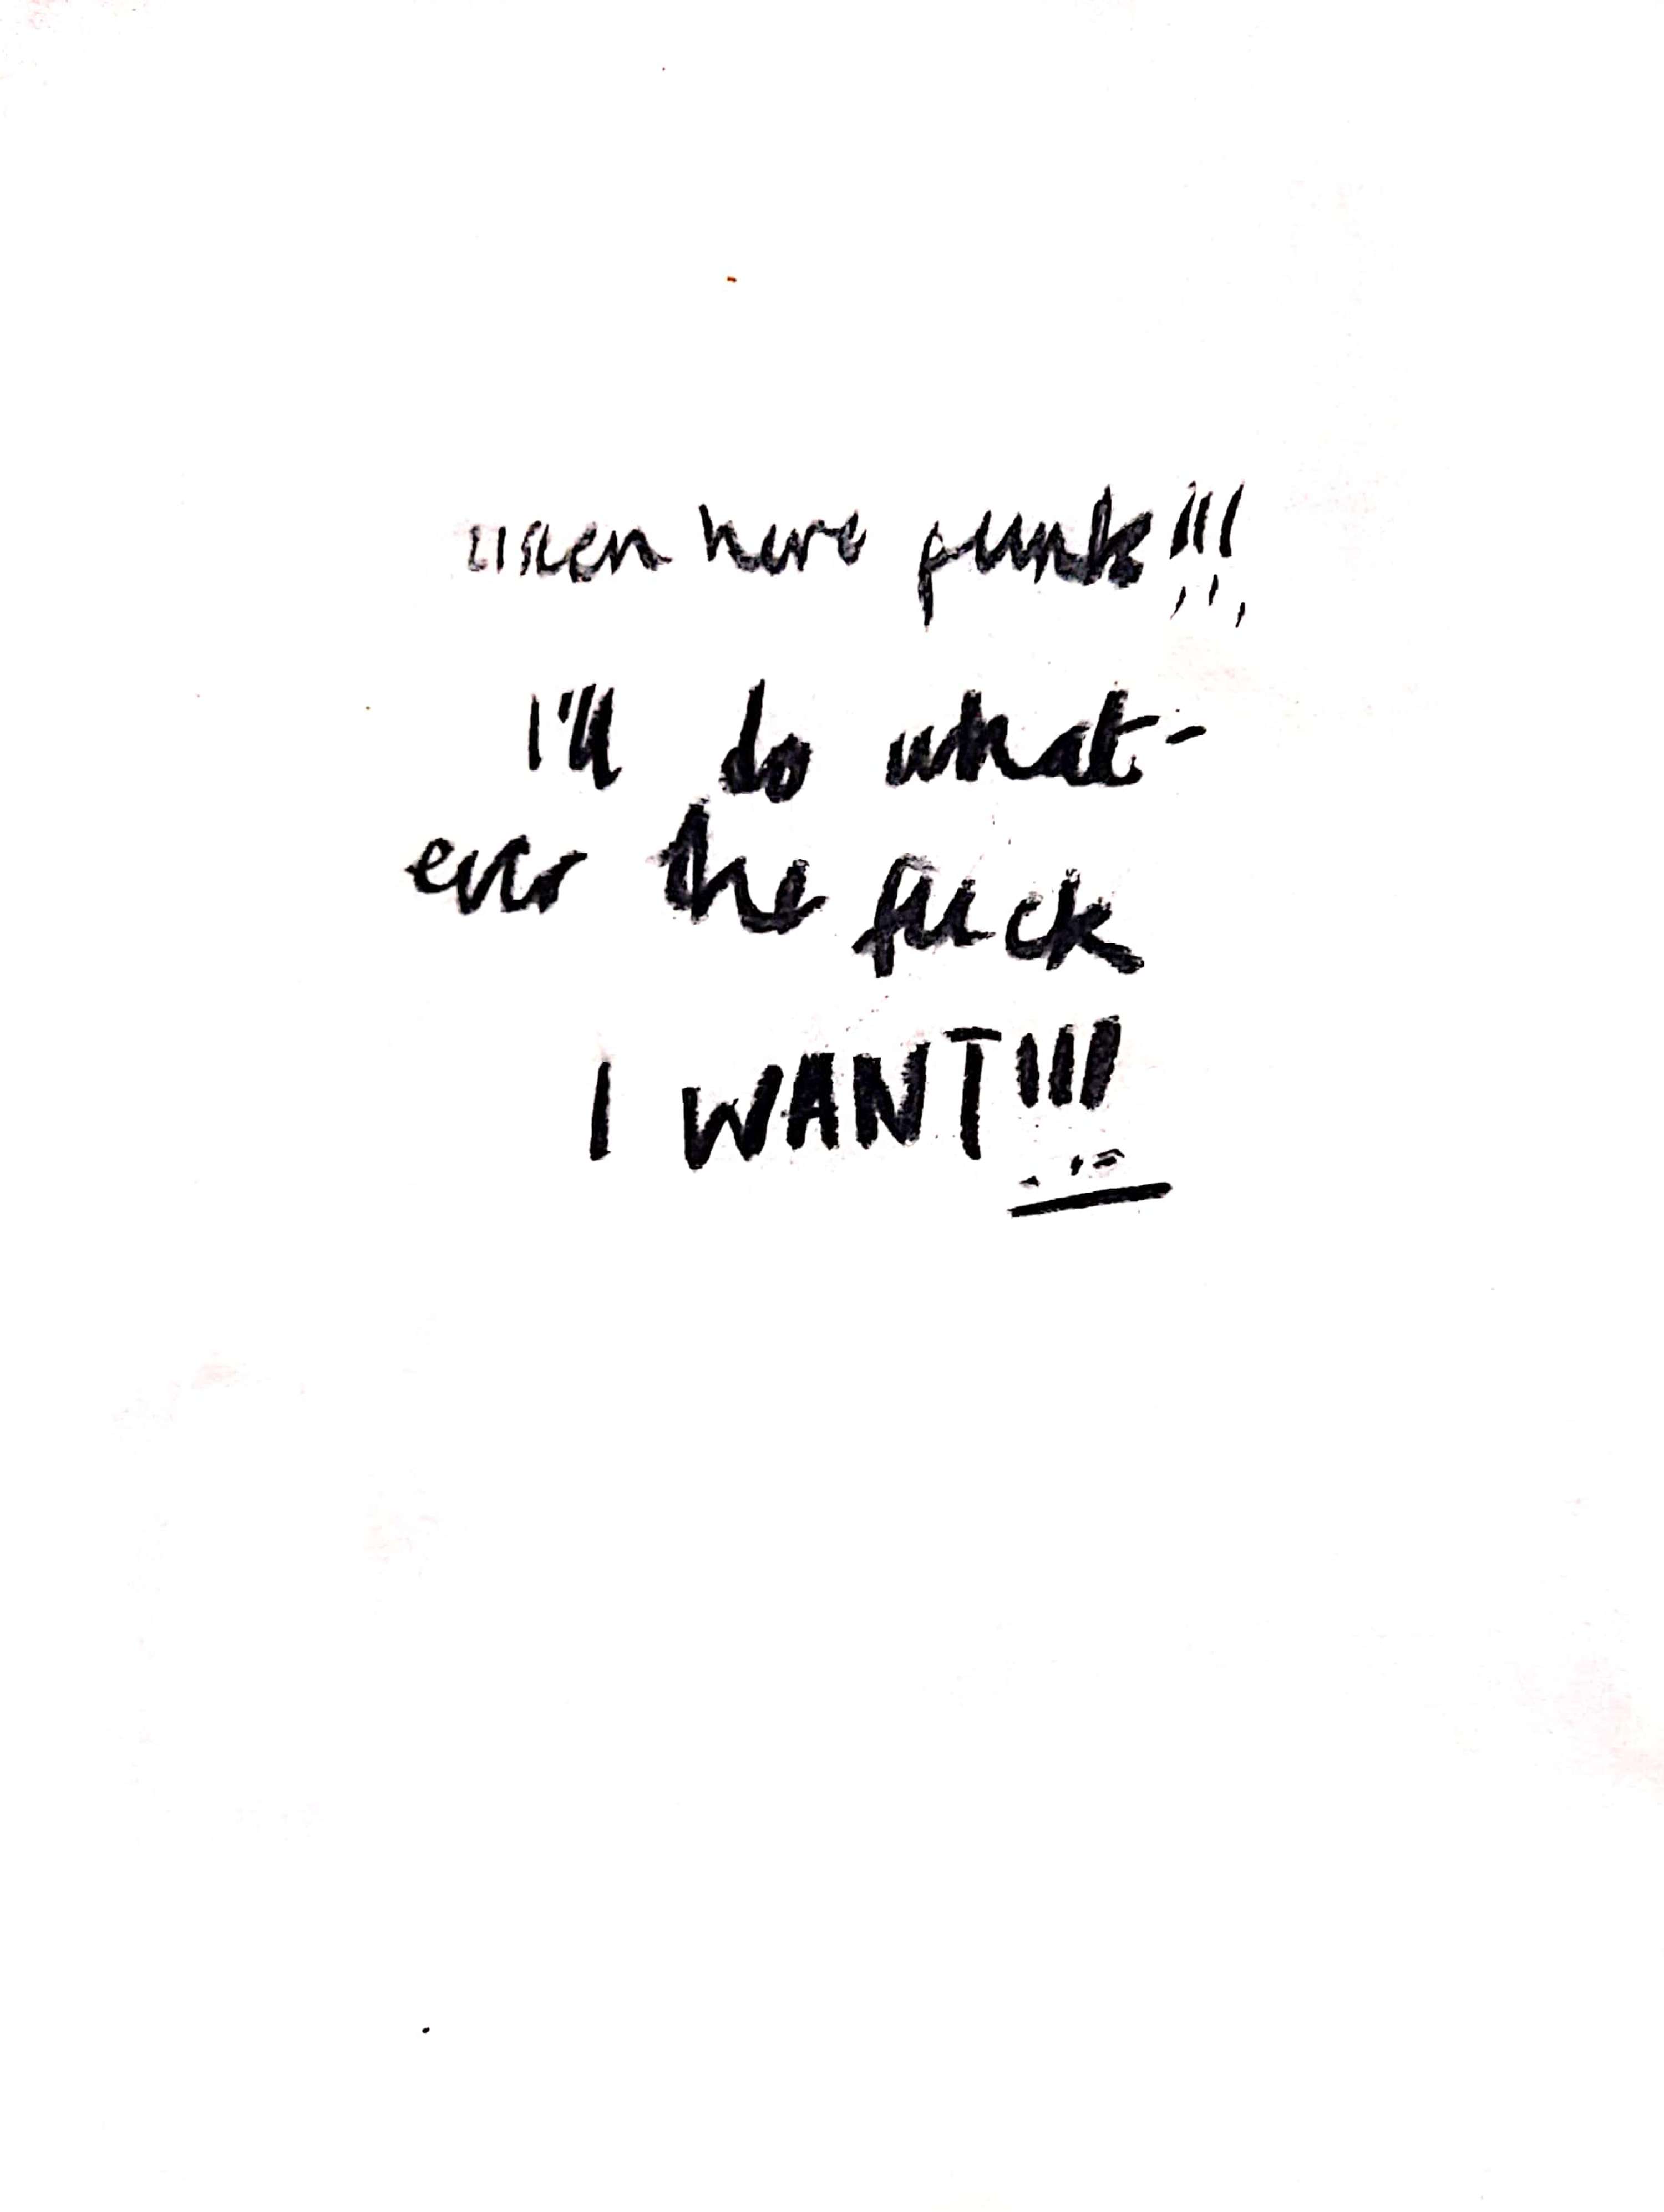 listen here punk!!!
I'll do what-
ever the fuck
I WANT!!!